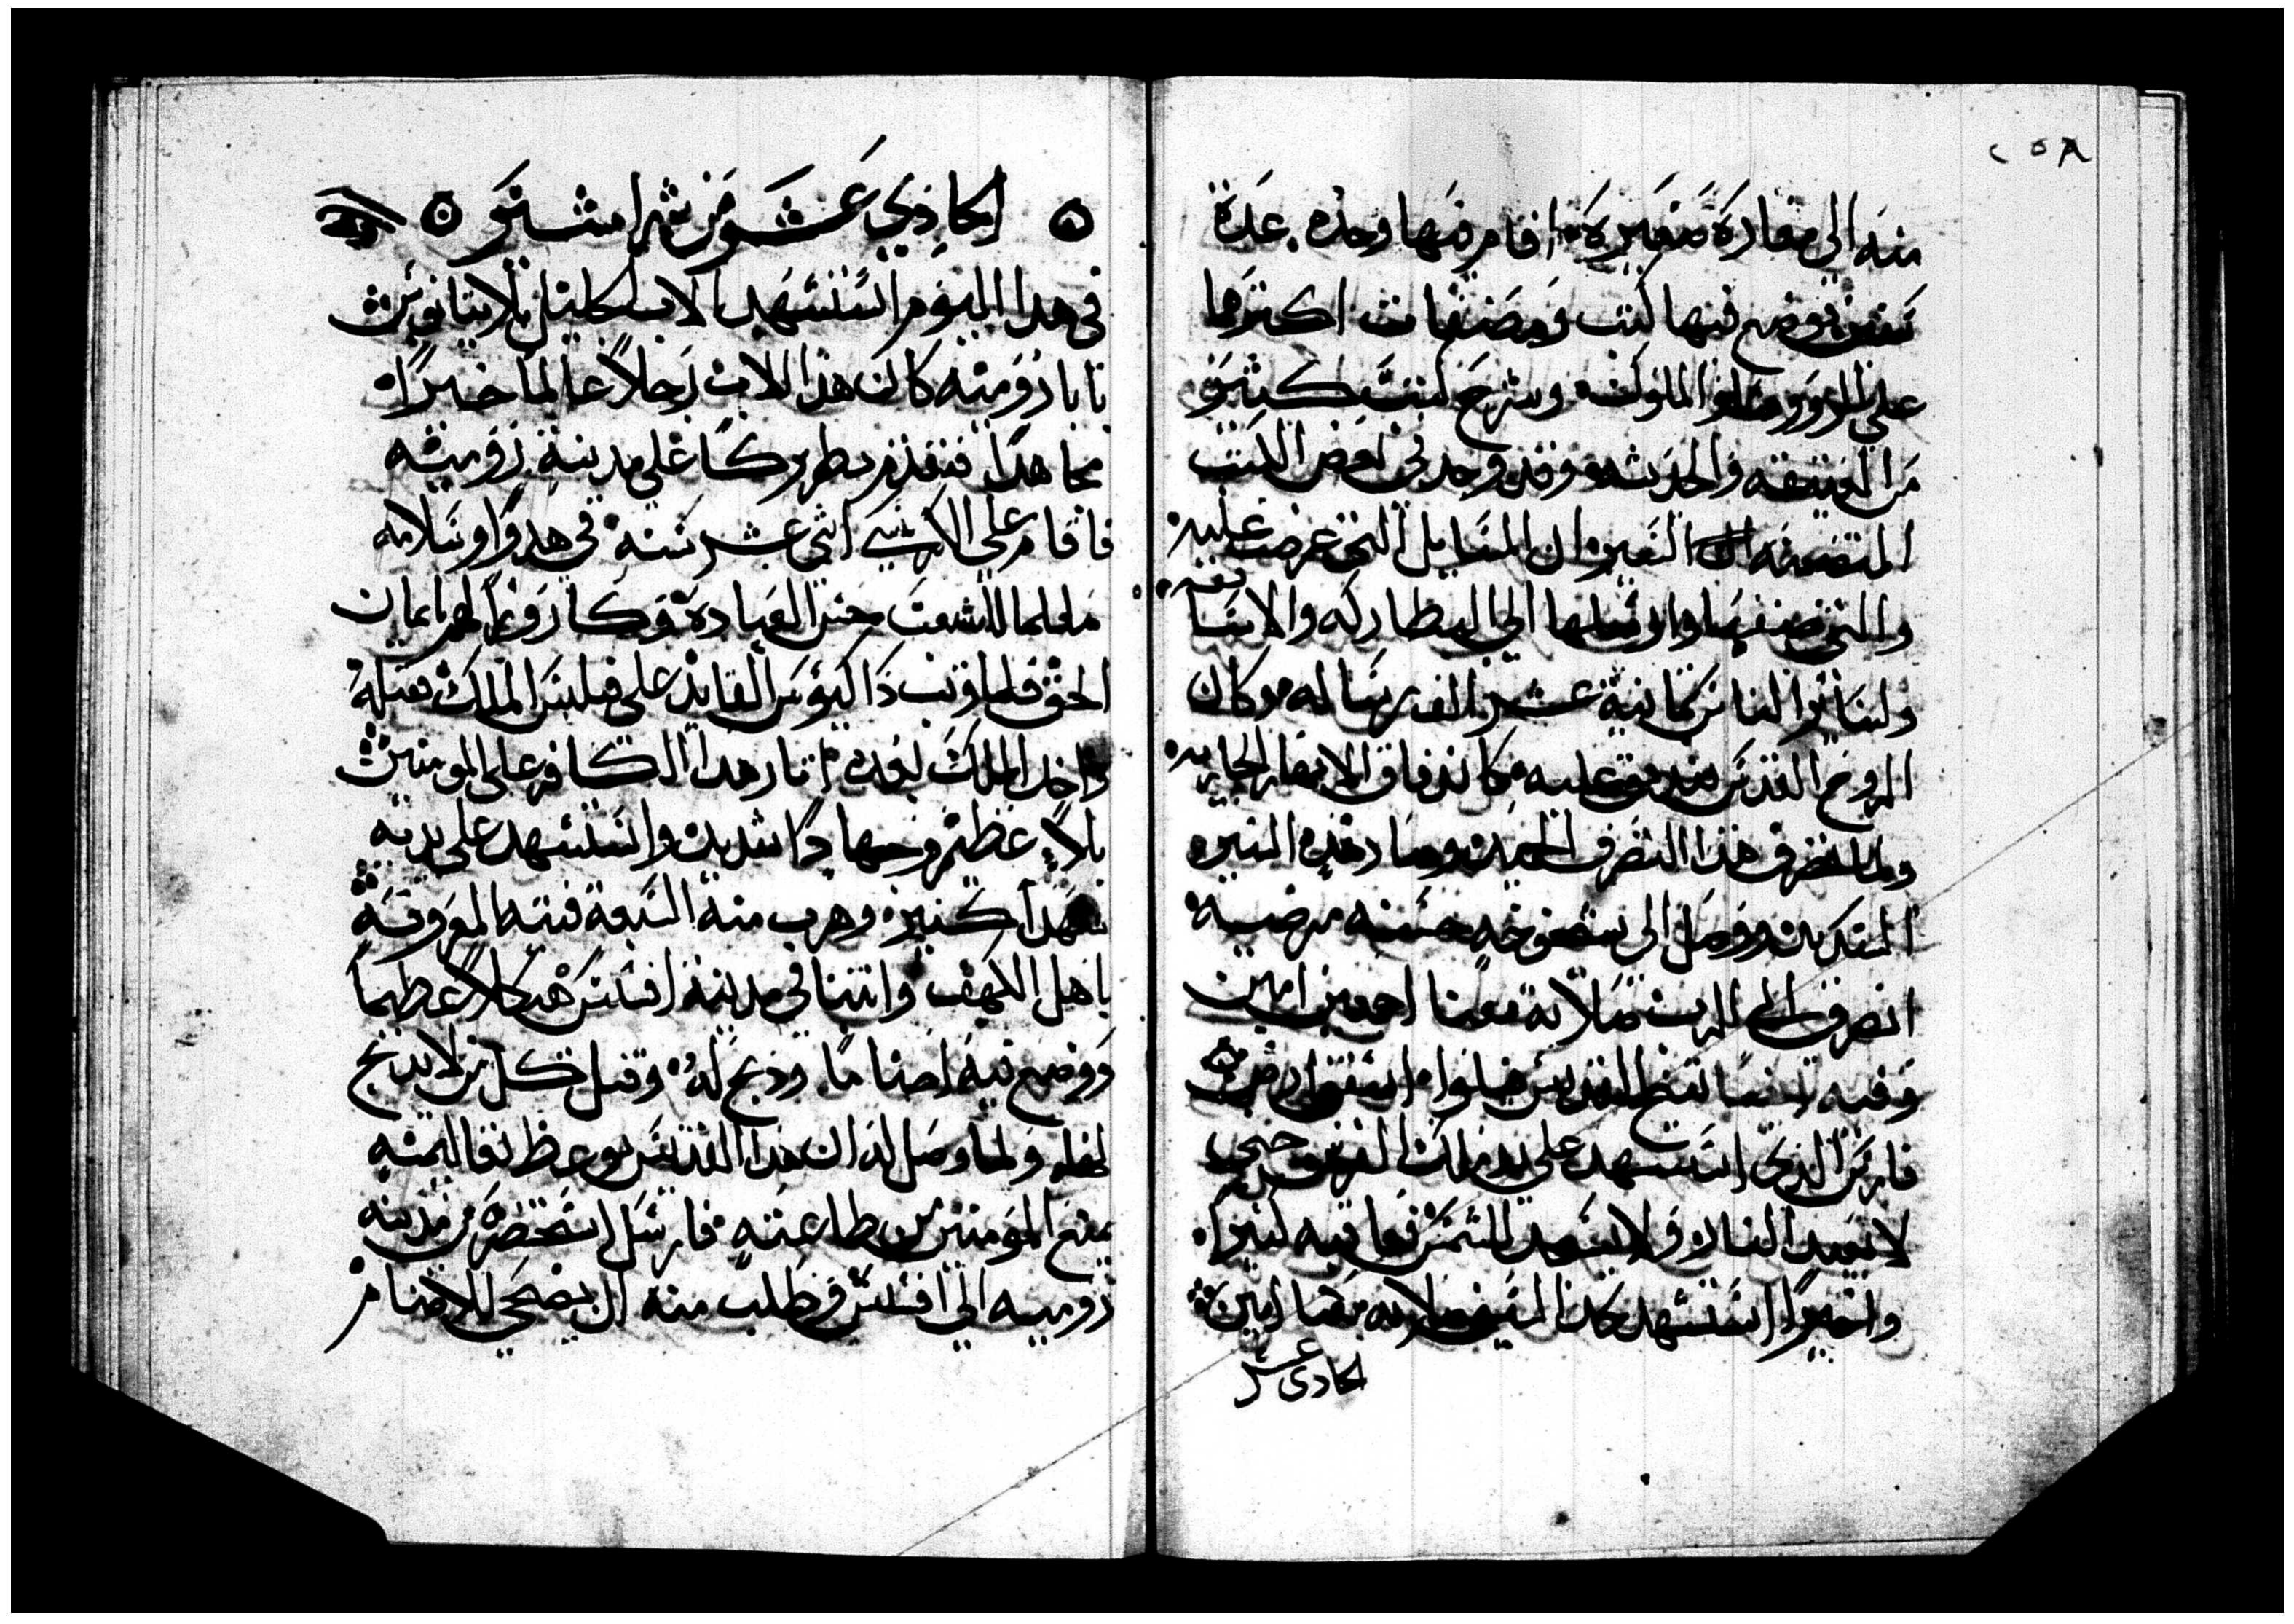 ٢٥٨
منه الى مغارة صغيره اقام فيها وحده عدة
سنين ووضع فيها كتب ومصنفات اكثرها
على الملوك وشرح كتب كثيره
من العتيقه والحديثه وقد وجد في بعض الكتب
المتضمنه السير ان المسايل التي عرضت عليه
والتي صنفها وارسلها الى البطاركه والاساقفه
ولساير الناس ثمانية عشر الف رساله وكان
الروح القدس عليه كاندفاق الانهار الجاريه
ولما تصرف هذا التصرف الحميد وسار هذه السيره
ووصل الى شيخوخه حسنه مرضيه
انصرف الى الرب صلاته معنا اجمعين امين
وفيه ايضا القديس
فارس الذي استشهد على يد ملك الفرس حتى
لا يعبد النار ولا يسجد للشمس فعاقبه كثيرا
واخيرا استشهد بحد السيف صلاته معنا امين
الحادي عشر
الحادي عشر من شهر امشير
في هذا اليوم استشهد الاب الجليل بلاتيانوس
بابا روميه كان هذا الاب رجلا عالما خبيرا
مجاهدا فتقدم بطريركا على مدينة روميه
فاقام على الكرسي اثني عشر سنه في هدوا وسلامه
معلما للشعب حسن العباده وحارزا لهم بايمان
الحق فلما وثب داكيوس القايد على فيلبس الملك فقتله
واخذ الملك بعده اثار هذا الكافر على المومنين
بلاء عظيم وجهادا شديدا واستشهد على يديه
شهدا كثيره وهرب منه السبعة فتيه المعروفه
باهل الكهف وابتنا في مدينة افسس هيكلا عظيما
ووضع فيه اصناما وذبح لها وقتل كل من لا يذبح
لها ولما وصل له ان هذا القديس بوعظ تعاليمه
يمنع المومنين من طاعته فارسل استحضره من مدينه
روميه الى افسس وطلب منه ان يضحي للاصنام